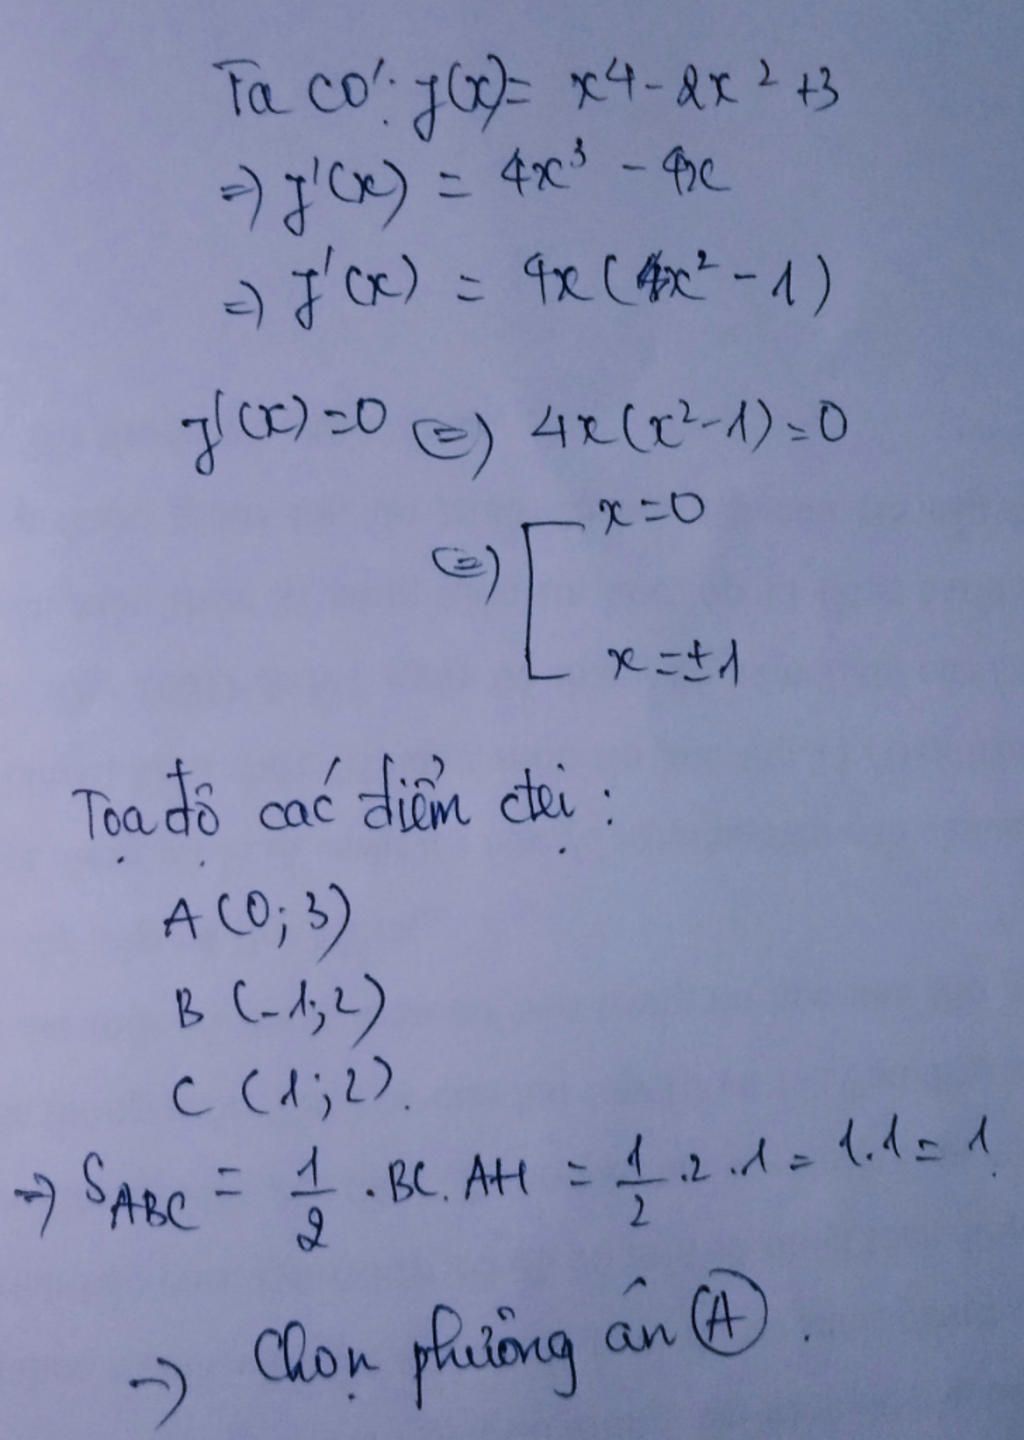 Ta có: y(x)= x4 - 2x² +3
=> y'(x) = 4x³ - 4x
=> y'(x) = 4x (x² - 1)
y'(x)=0 <=> 4x(x²-1)=0
<=> [ x=0
x=±1
Tọa độ các điểm ctrị :
A (0; 3)
B (-1; 2)
C (1; 2).
=> S_ABC = 1/2 . BC. AH = 1/2 .2 .1 = 1.1 = 1.
=> Chọn phương án Ⓐ.